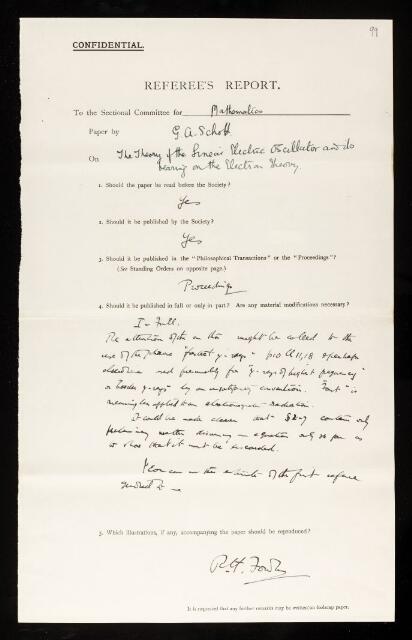 99
CONFIDENTIAL.
REFEREE'S REPORT.
To the Sectional Committee for Mathematics
Paper by G. A. Schott
On The Theory of the Linear Electric Oscillator and its
bearing on the Electron Theory
1. Should the paper be read before the Society?
Yes
2. Should it be published by the Society?
Yes
3. Should it be published in the "Philosophical Transactions" or the "Proceedings"?
(See Standing Orders on opposite page.)
Proceedings
4. Should it be published in full or only in part? Are any material modifications necessary?
In full.
The attention of the author might be called to the
use of the phrase "fastest γ-rays" p10 ll 11, 18
elsewhere and presumably for "γ-rays of highest frequency"
or harder γ-rays by an convention. "Fast" is
meaningless applied to an electromagnetic radiation.
It could be made clearer that § 2-7 contain only
preliminary matter
that it must be discarded.
I concur in the of the first referee
5. Which illustrations, if any, accompanying the paper should be reproduced?
R. H. Fowler
It is requested that any further remarks may be written on foolscap paper.